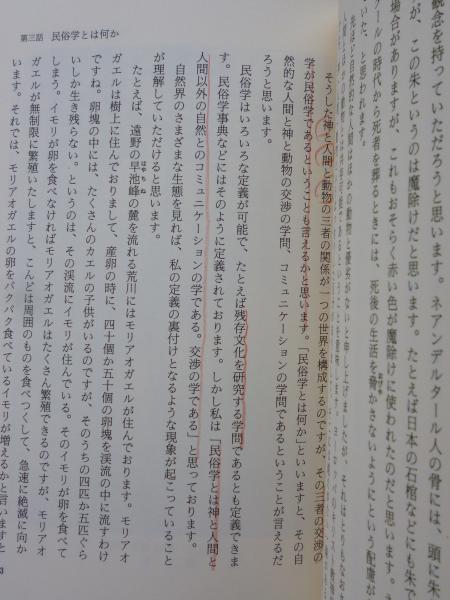 観念を持っていただろうと思います。ネアンデルタール人の骨には、頭に朱
が、この朱というのは魔除けだと思います。たとえば日本の石棺などにも朱で
場合がありますが、これもおそらく赤い色が魔除けに使われたのだと思います。
クールの時代から死者を葬るときには、死後の生活を脅かさないようにという配慮が
いた、と思われます。
第三話　民俗学とは何か
そうした神と人間と動物の三者の関係が一つの世界を構成するのですが、その三者の交渉の
学が民俗学であるということも言えるかと思います。「民俗学とは何か」といいますと、その自
然的な人間と神と動物の交渉の学問、コミュニケーションの学問であるということが言えるだ
ろうと思います。
民俗学はいろいろな定義が可能で、たとえば残存文化を研究する学問であるとも定義できま
す。民俗学事典などにはそのように定義されております。しかし私は「民俗学とは神と人間と
人間以外の自然とのコミュニケーションの学である。交渉の学である」と思っております。
自然界のさまざまな生態を見れば、私の定義の裏付けとなるような現象が起こっていること
が理解していただけると思います。
たとえば、遠野の早池峰の麓を流れる荒川にはモリアオガエルが住んでおります。モリアオ
はやちね
ガエルは樹上に住んでおりまして、産卵の時に、四十個か五十個の卵塊を渓流の中に流すわけ
ですね。卵塊の中には、たくさんのカエルの子供がいるのですが、そのうちの四匹か五匹ぐら
いしか生き残らない。というのは、その渓流にイモリが住んでいる。そのイモリが卵を食べて
しまう。イモリが卵を食べなければモリアオガエルはたくさん繁殖できるのですが、モリアオ
ガエルが無制限に繁殖いたしますと、こんどは周囲のものを食べつくして、急速に絶滅に向か
います。それでは、モリアオガエルの卵をパクパク食べているイモリが増えるかと言いますと
3